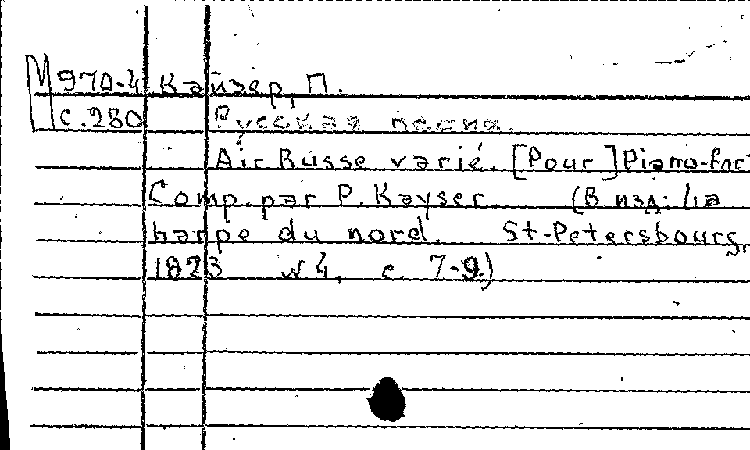 М 970-4 Кайзер, П.
с. 280 Русская песня.
Air Russe varié. [Pour] Piano-for
Comp. par P. Kayser (В изд: La
harpe du nord. St-Petersbourg,
1823 № 4, с. 7-9.)